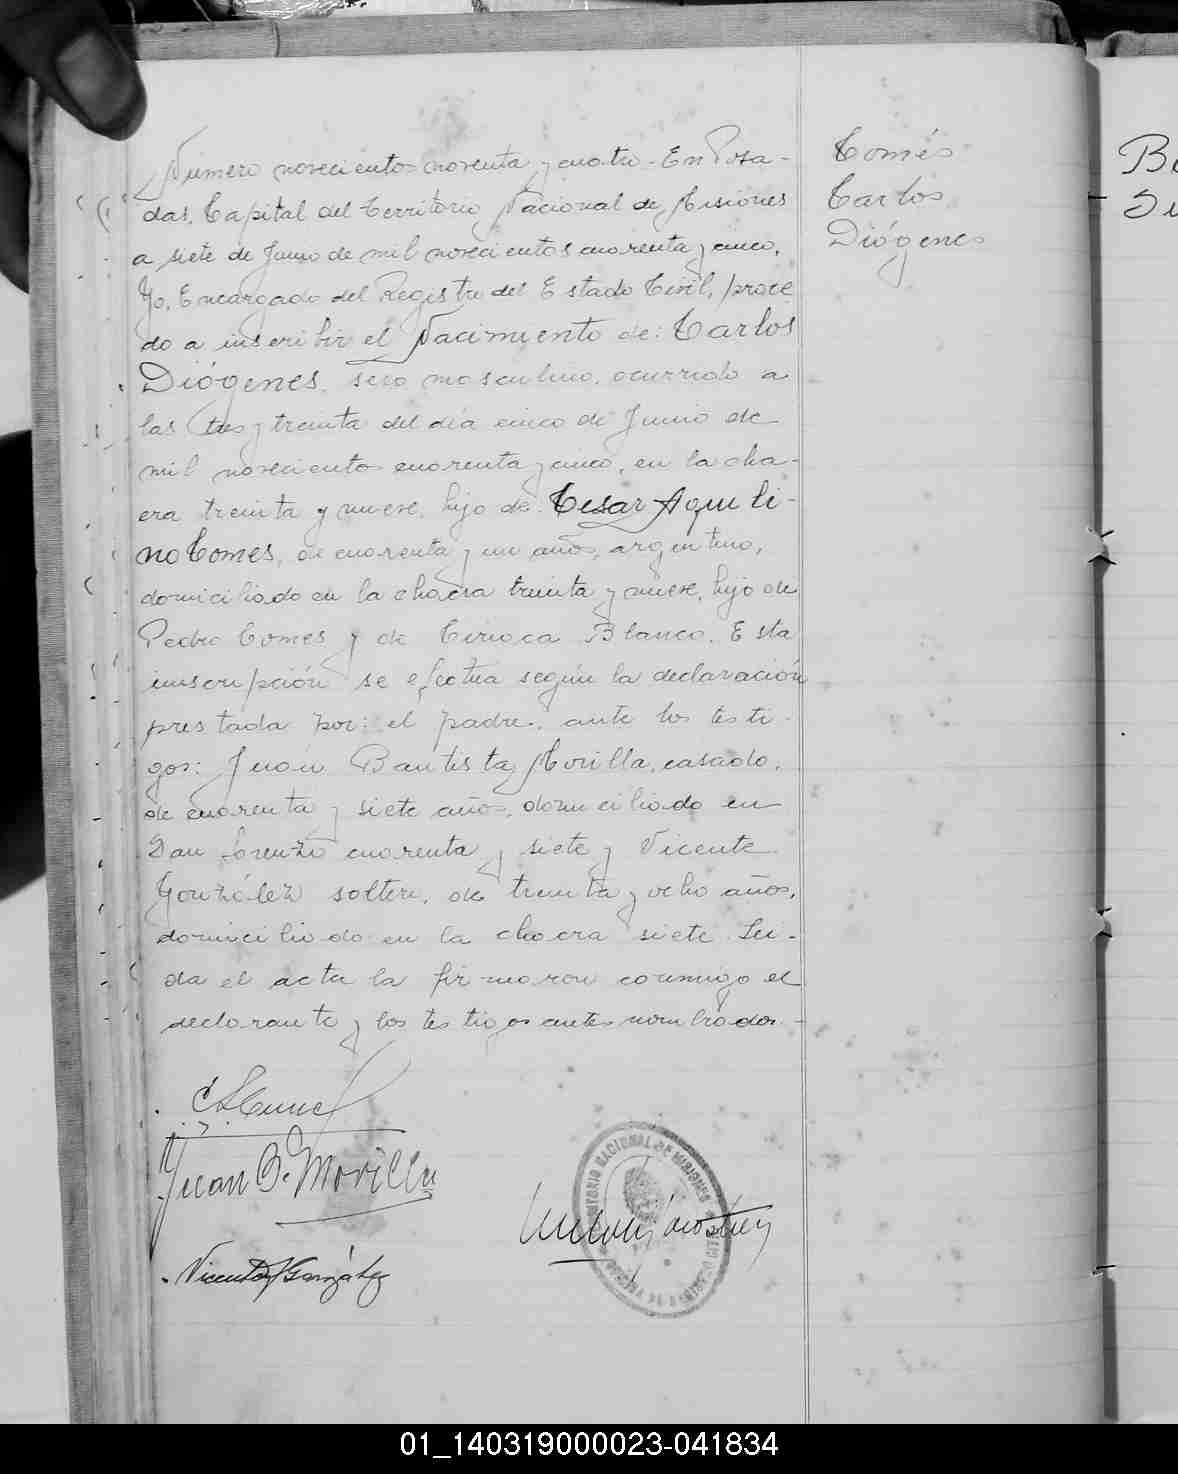 Número novecientos noventa y cuatro - En Posa-
das, Capital del Territorio Nacional de Misiones
a siete de Junio de mil novecientos cuarenta y cinco,
Yo, Encargado del Registro del Estado Civil, proce
do a inscribir el Nacimiento de: Carlos
Diógenes, sexo masculino, ocurrido a
las tres y treinta del día cinco de Junio de
mil novecientos cuarenta y cinco, en la cha-
cra treinta y nueve, hijo de Cesar Aquili-
no Comes, de cuarenta y un años, argentino,
domiciliado en la chacra treinta y nueve, hijo de
Pedro Comes y de Blanco. Esta
inscripción se efectua según la declaración
prestada por: el padre, ante los testi-
gos: Juan Bautista Morilla, casado,
de cuarenta y siete años, domiciliado en
San Lorenzo cuarenta y siete y Vicente
González soltero, de treinta y ocho años,
domiciliado en la chacra siete. Leí-
da el acta la firmaron conmigo el
declarante y los testigos antes nombrados. -
Comes
Carlos
Diógenes
Juan B. Morilla
Vicente González
NACIONAL DE MISIONES
01_140319000023-041834